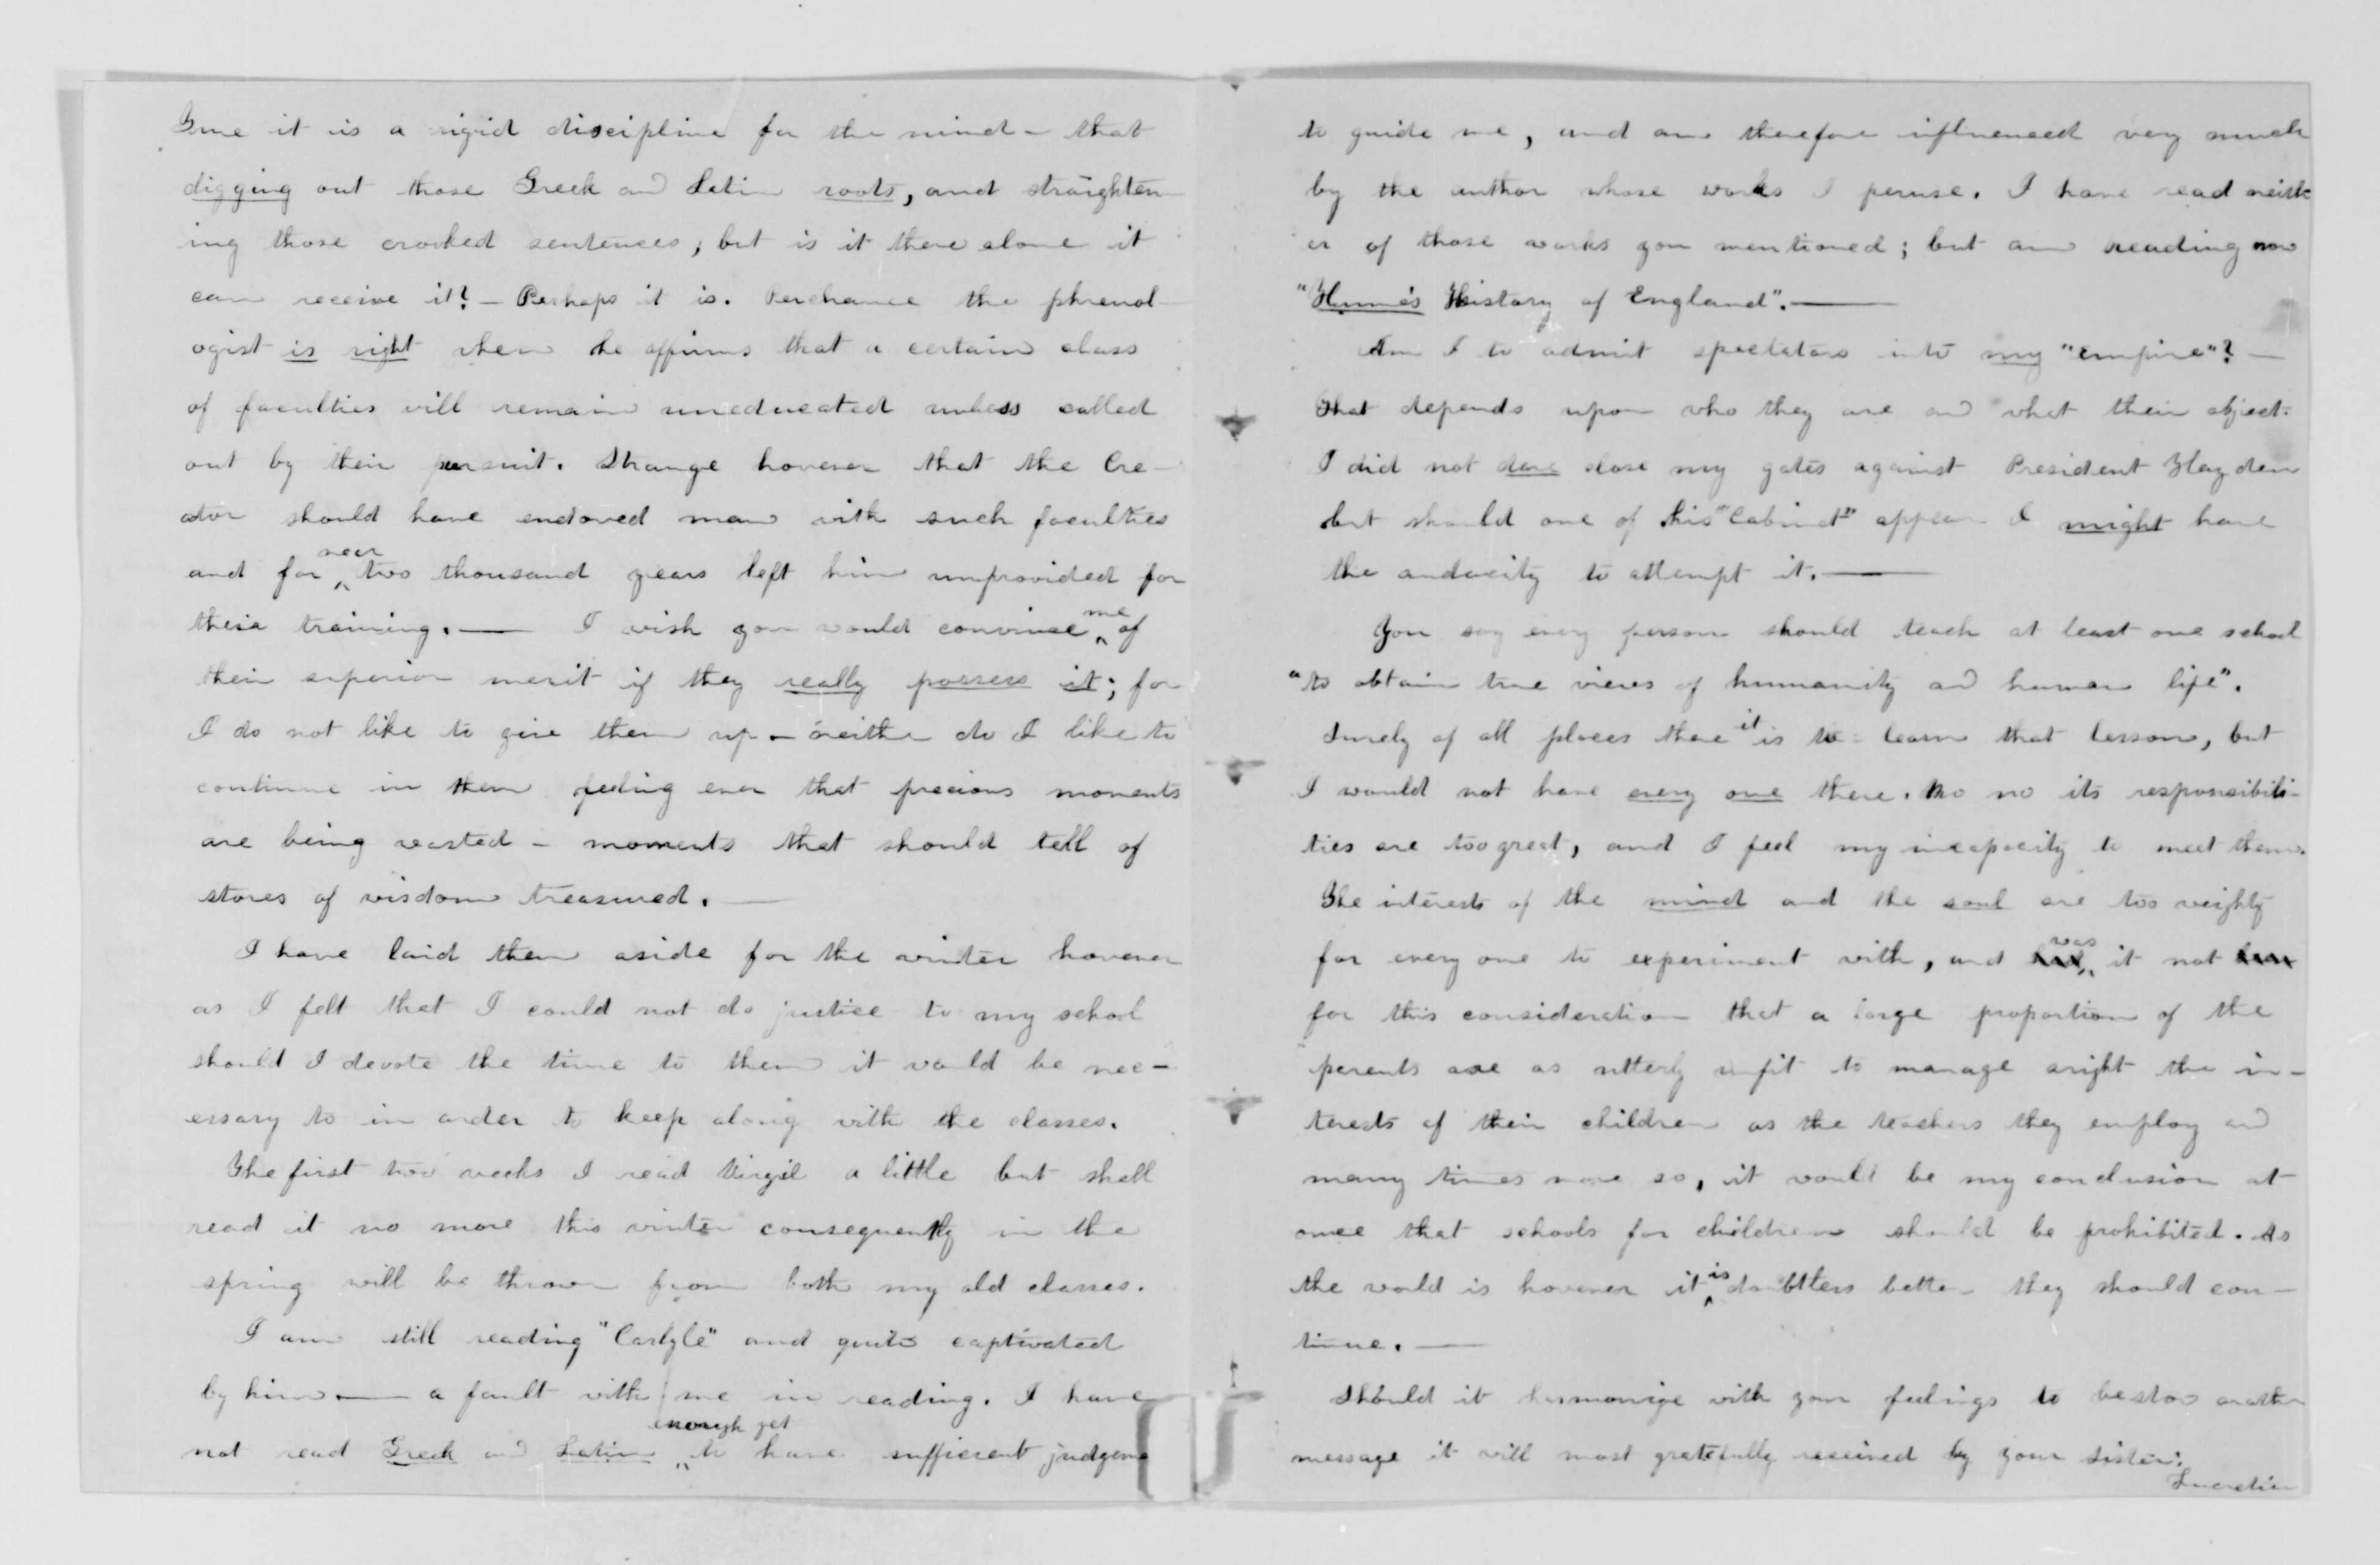 True it is a rigid discipline for the mind - that
digging out those Greek and Latin roots, and straighten
ing those crooked sentences, but is it there alone it
can receive it? - Perhaps it is. Perchance the phrenol
ogist is right when he affirms that a certain class
of faculties will remain uneducated unless called
out by their pursuit. Strange however that the Cre-
ator should have endowed man with such faculties
and for near two thousand years left him unprovided for
their training. — I wish you would convince me of
their superior merit if they really possess it; for
I do not like to give them up - neither do I like to
continue in them feeling ever that precious moments
are being wasted - moments that should tell of
stores of wisdom treasured. —
I have laid them aside for the winter however
as I felt that I could not do justice to my school
should I devote the time to them it would be nec-
essary to in order to keep along with the classes.
The first two weeks I read Virgil a little but shall
read it no more this winter consequently in the
spring will be thrown from both my old classes.
I am still reading "Carlyle" and quite captivated
by him. — a fault with me in reading. I have
not read Greek and Latin enough yet to have sufficient judgme
to guide me, and am therefore influenced very much
by the author whose works I peruse. I have read neith
er of those works you mentioned; but am reading now
"Hume's History of England". —
Am I to admit spectators into my "empire"? —
That depends upon who they are and what their object.
I did not dare close my gates against President Hayden
but should one of his "Cabinet" appear I might have
the audacity to attempt it. —
You say every person should teach at least one school
"to obtain true views of humanity and human life".
Surely of all places there it is to learn that lesson, but
I would not have every one there. No no its responsibili-
ties are too great, and I feel my incapacity to meet them.
The interests of the mind and the soul are too weighty
for every one to experiment with, and was it not
for this consideration that a large proportion of the
parents are as utterly unfit to manage aright the in-
terests of their children as the teachers they employ and
many times more so, it would be my conclusion at
once that schools for children should be prohibited. As
the world is however it is doubtless better they should con-
tinue. —
Should it harmonize with your feelings to bestow another
message it will most gratefully received by your sister.
Lucretia